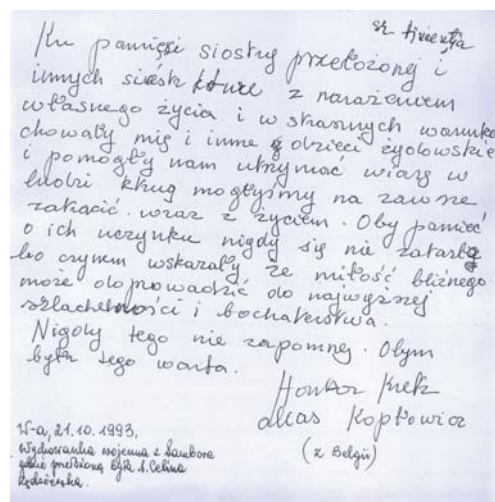 Ku pamięci siostry przełożonej i
innych sióstr które z narażeniem
własnego życia i w strasznych warunka
chowały mię i inne dzieci żydowskie
i pomogły nam utrzymać wiarę w
ludzi którą mogłyśmy na zawsze
zatracić wraz z życiem. Oby pamięć
o ich uczynku nigdy się nie zatarła
bo czynem wskazały że miłość bliźnego
może doprowadzić do najwyższej
szlachetności i bochaterstwa.
Nigdy tego nie zapomnę. Obym
była tego warta.
alias Kopłowicz
(z Belgii)
W-a, 21.10.1993,
Wychowanka wojenna z Sambora
gdzie przełożoną była s. Celina